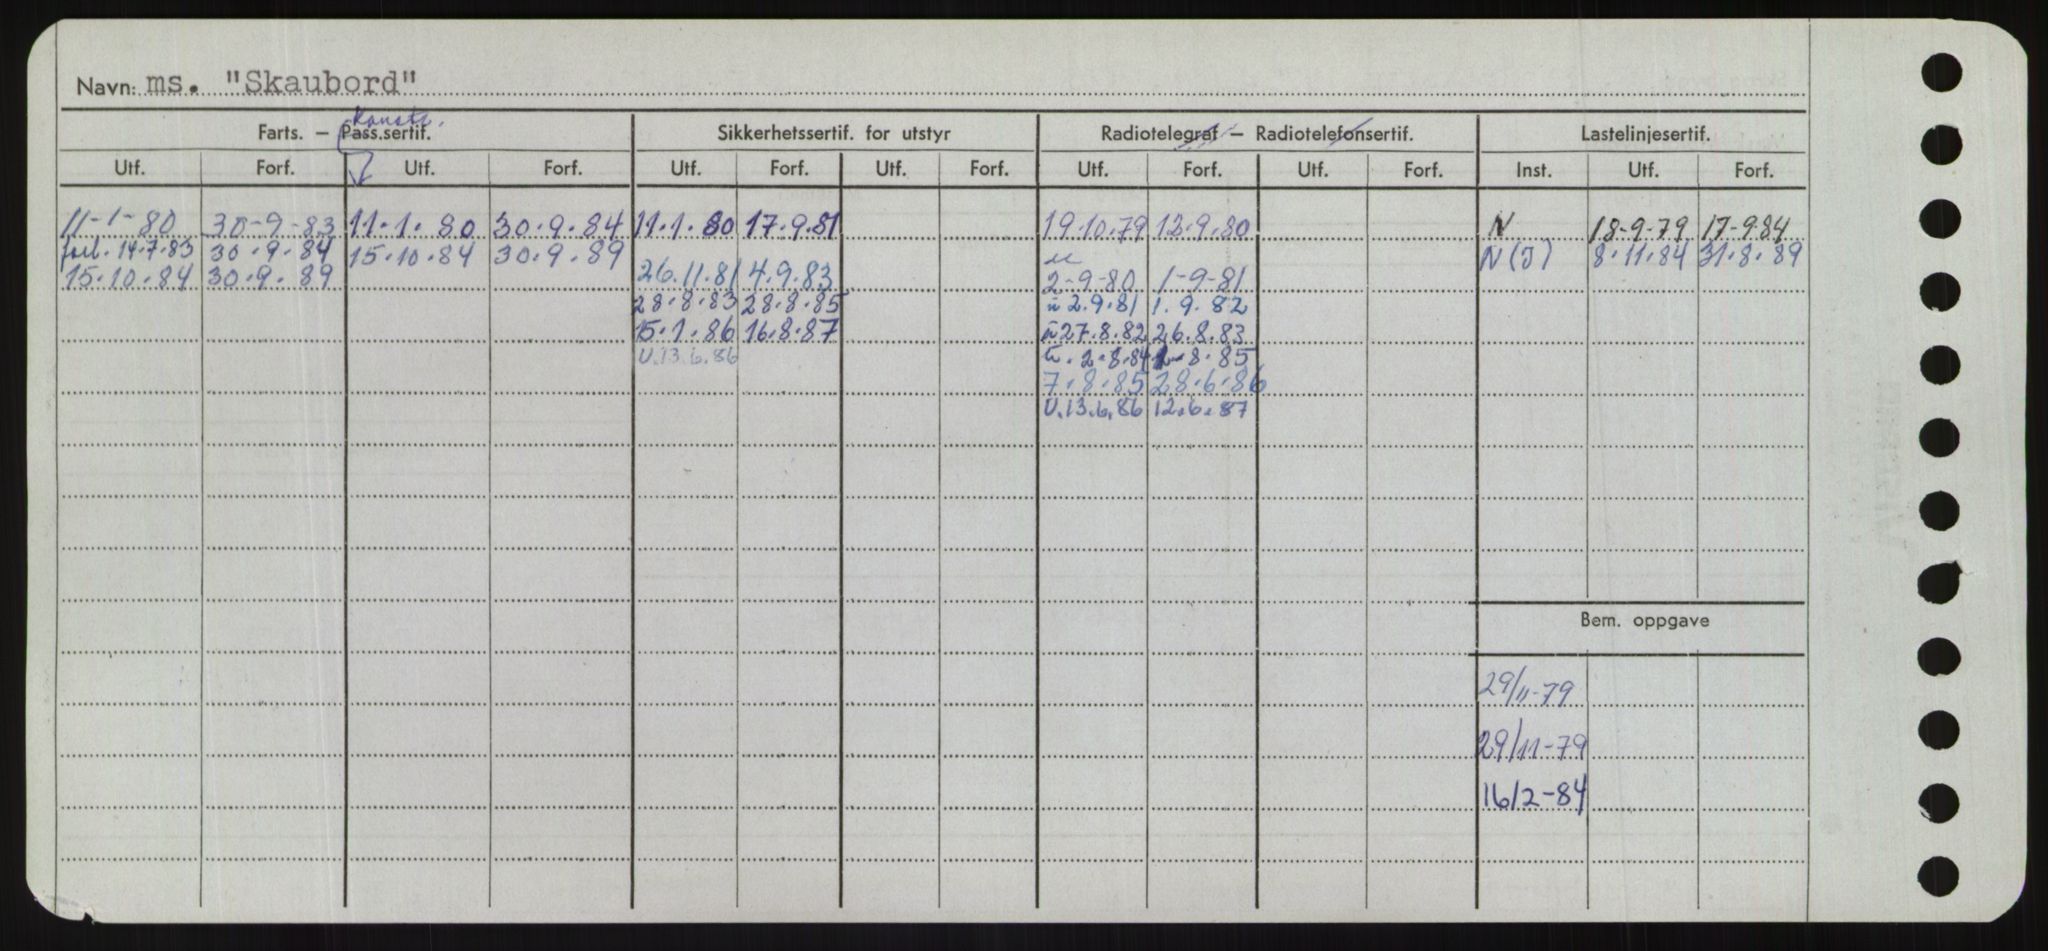 Navn: ms. "Skaubord"
Konstr.
Farts. – Pass.sertif. Sikkerhetssertif. for utstyr Radiotelegraf – Radiotelefonsertif. Lastelinjesertif.
Utf. Forf. Utf. Forf. Utf. Forf. Utf. Forf. Utf. Forf. Utf. Forf. Inst. Utf. Forf.
11-1-80 30-9-83 11.1.80 30.9.84 11.1.80 17.9.81 19.10.79 12.9.80 N 18-9-79 17-9.84
forl. 14.7.83 30.9.84 15.10.84 30.9.89 N(J) 8.11.84 31.8.89
15.10.84 30.9.89 26.11.81 4.9.83 2-9-80 1-9-81
28.8.83 28.8.85 u 2.9.81 1.9.82
15.1.86 16.8.87 u 27.8.82 26.8.83
U.13.6.86 u. 2.8.84 1-8.85
7.8.85 28.6.86
U.13.6.86 12.6.87
Bem. oppgave
29/11-79
29/11-79
16/2-84